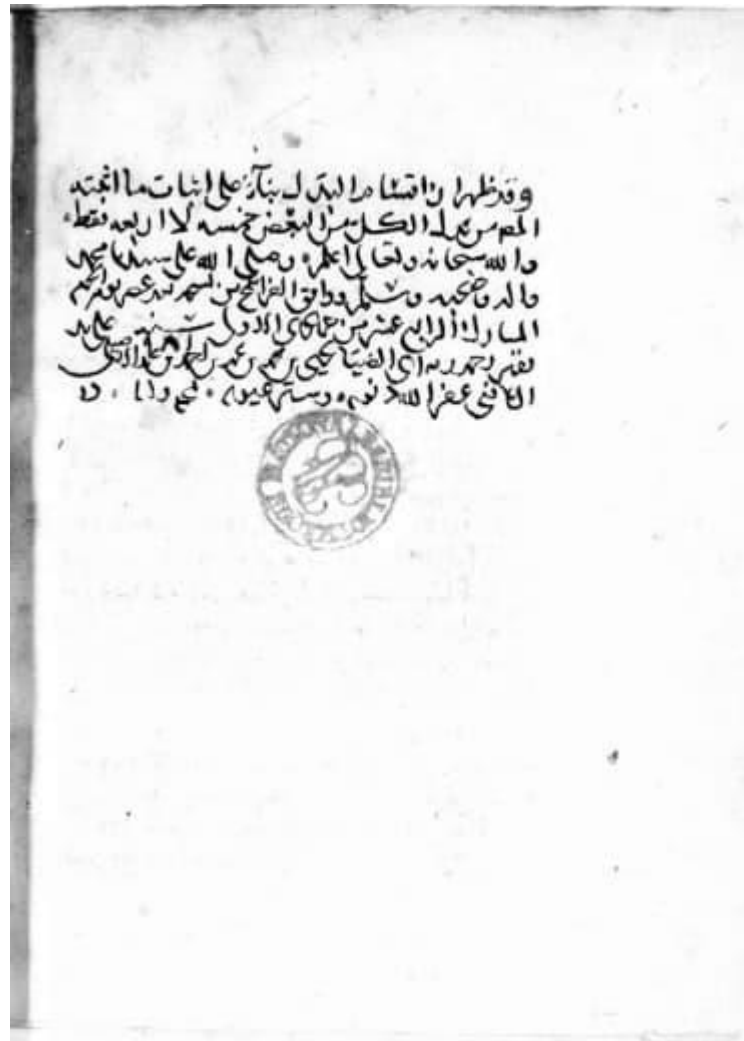 وقد ظهر ان اقسام البدل بناء على اثبات ما اثبته
المص من بدل الكل من البعض خمسه لا اربعه فقط
والله سبحانه وتعالى اعلم وصلى الله على سيدنا محمد
واله وصحبه وسلم ووافق الفراغ من عصر يوم
المبارك الرابع عشر من جمادى الاول سنه على يد
فقير رحمة ربه ابى الضيا يحيى بن محمد بن
غفر الله ذنوبه وستر عيوبه